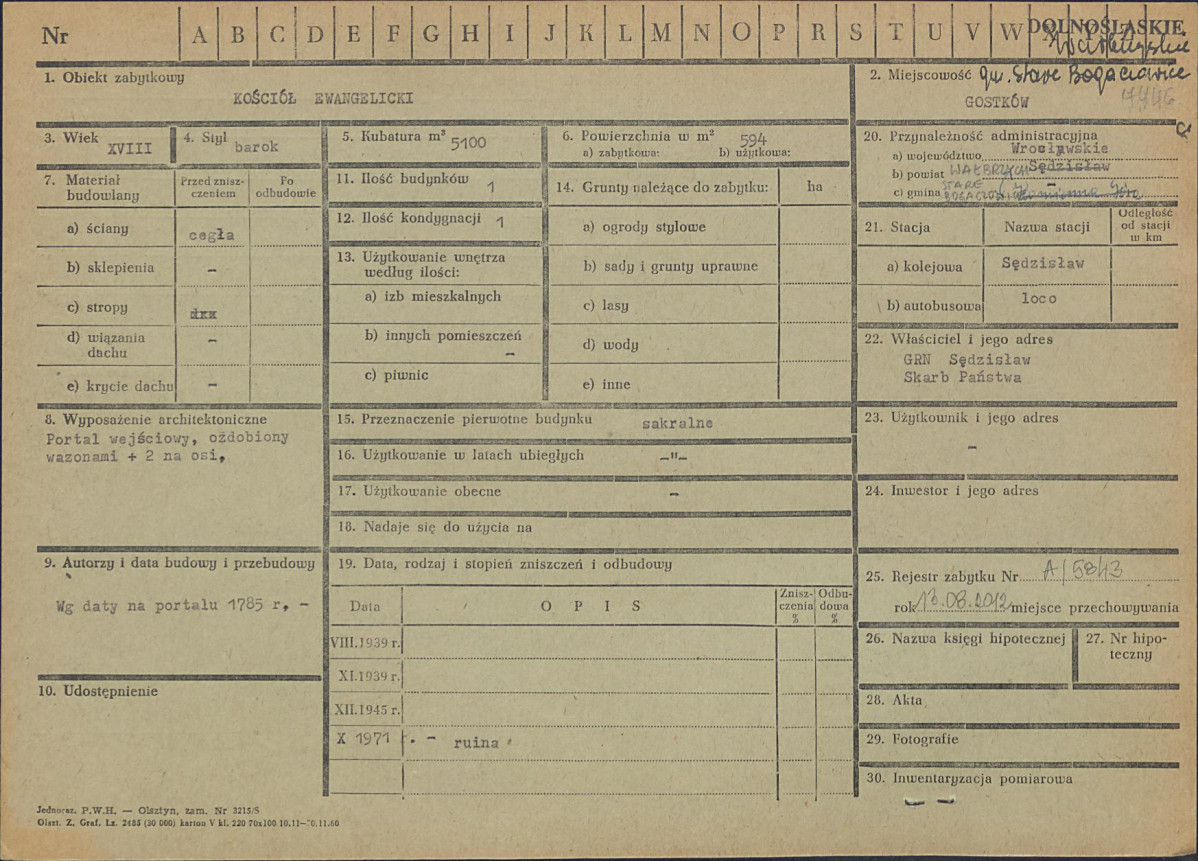 Nr A B C D E F G H I J K L M N O P R S T U V W DOLNOŚLĄSKIE
1. Obiekt zabytkowy
KOŚCIÓŁ EWANGELICKI
2. Miejscowość gm. Stare Bogaczowice
GOSTKÓW 7446
3. Wiek XVIII
4. Styl barok
5. Kubatura m³ 5100
6. Powierzchnia w m² 594
a) zabytkowa: b) użytkowa:
7. Materiał budowlany
Przed zniszczeniem
Po odbudowie
a) ściany cegła
b) sklepienia –
c) stropy
d) wiązania dachu –
e) krycie dachu –
8. Wyposażenie architektoniczne
Portal wejściowy, ozdobiony
wazonami + 2 na osi,
9. Autorzy i data budowy i przebudowy
Wg daty na portalu 1785 r, –
10. Udostępnienie
11. Ilość budynków 1
12. Ilość kondygnacji 1
13. Użytkowanie wnętrza
według ilości:
a) izb mieszkalnych
b) innych pomieszczeń
–
c) piwnic
14. Grunty należące do zabytku: ha
a) ogrody stylowe
b) sady i grunty uprawne
c) lasy
d) wody
e) inne
15. Przeznaczenie pierwotne budynku sakralne
16. Użytkowanie w latach ubiegłych –"–
17. Użytkowanie obecne –
18. Nadaje się do użycia na
19. Data, rodzaj i stopień zniszczeń i odbudowy
Data O P I S
Znisz-
czenia
%
Odbu-
dowa
%
VIII.1939 r.
XI.1939 r.
XII.1945 r.
X 1971 r. – ruina
20. Przynależność administracyjna
a) województwo Wrocławskie
b) powiat WAŁBRZYCH Sędzisław
c) gmina STARE BOGACZOWICE Kamienna Góra
21. Stacja
Nazwa stacji
Odległość
od stacji
w km
a) kolejowa Sędzisław
b) autobusowa loco
22. Właściciel i jego adres
GRN Sędzisław
Skarb Państwa
23. Użytkownik i jego adres
–
24. Inwestor i jego adres
25. Rejestr zabytku Nr A/5843
rok 13.08.2012 miejsce przechowywania
26. Nazwa księgi hipotecznej
27. Nr hipo-
teczny
28. Akta
29. Fotografie
30. Inwentaryzacja pomiarowa
– –
Jednoraz. P.W.H. — Olsztyn, zam. Nr 3215/S
Olszt. Z. Graf. Lz. 2485 (30 000) karton V kl. 220 70x100